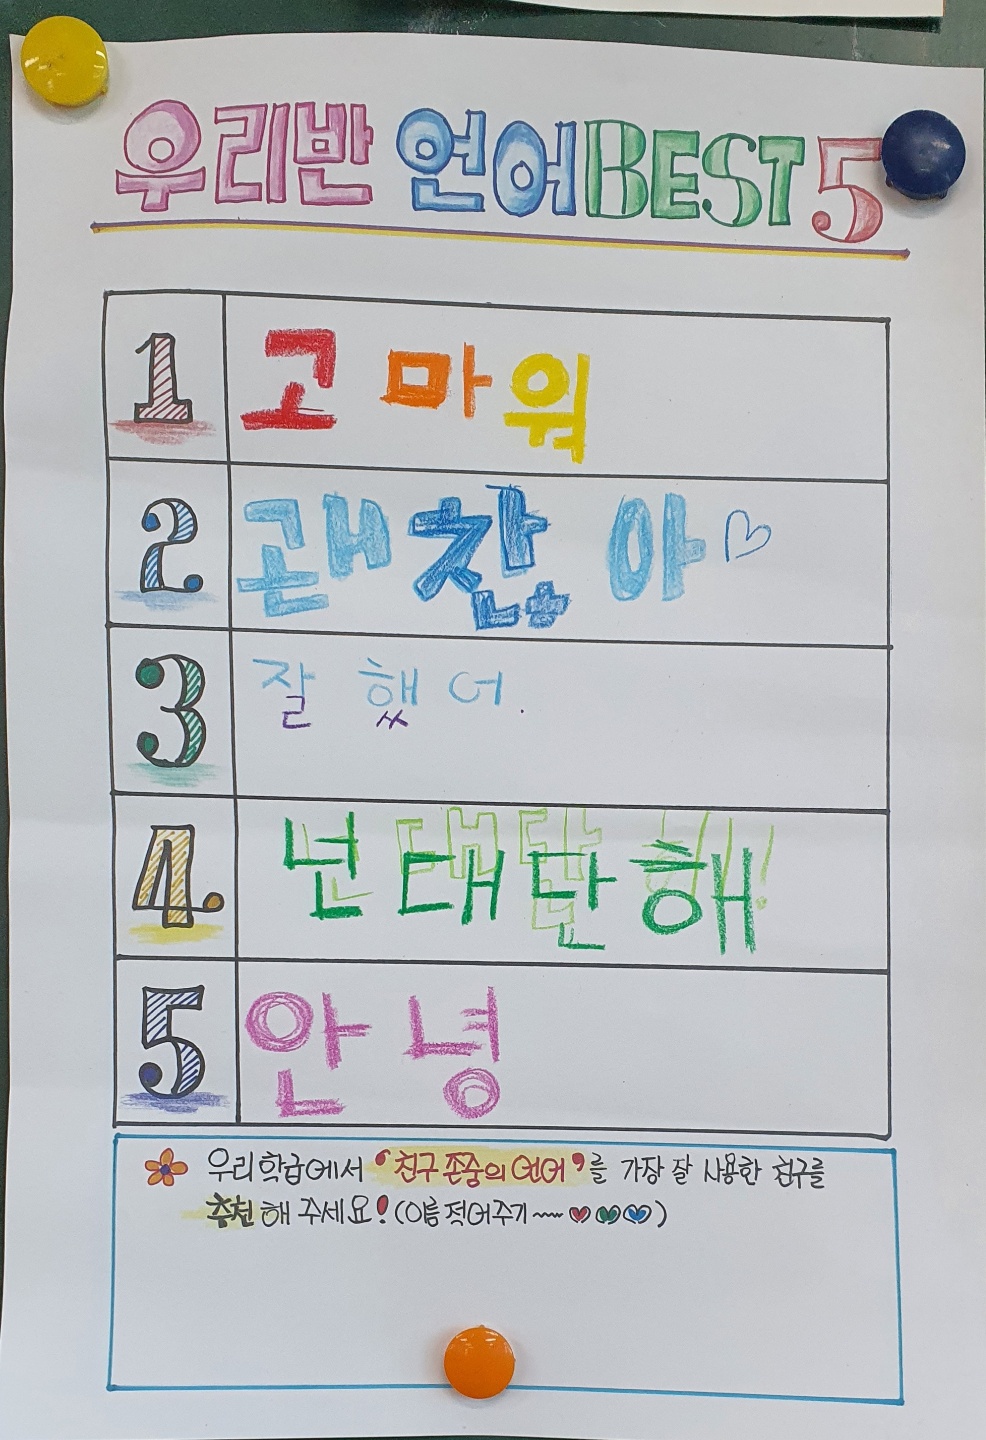 우리반 언어 BEST 5
1 고마워
2 괜찮아♡
3 잘 했 어.
4 넌 대단해!
5 안녕
우리 학급에서 '친구 존중의 언어'를 가장 잘 사용한 친구를
추천해 주세요! (이름 적어주기~~♥♥♥)